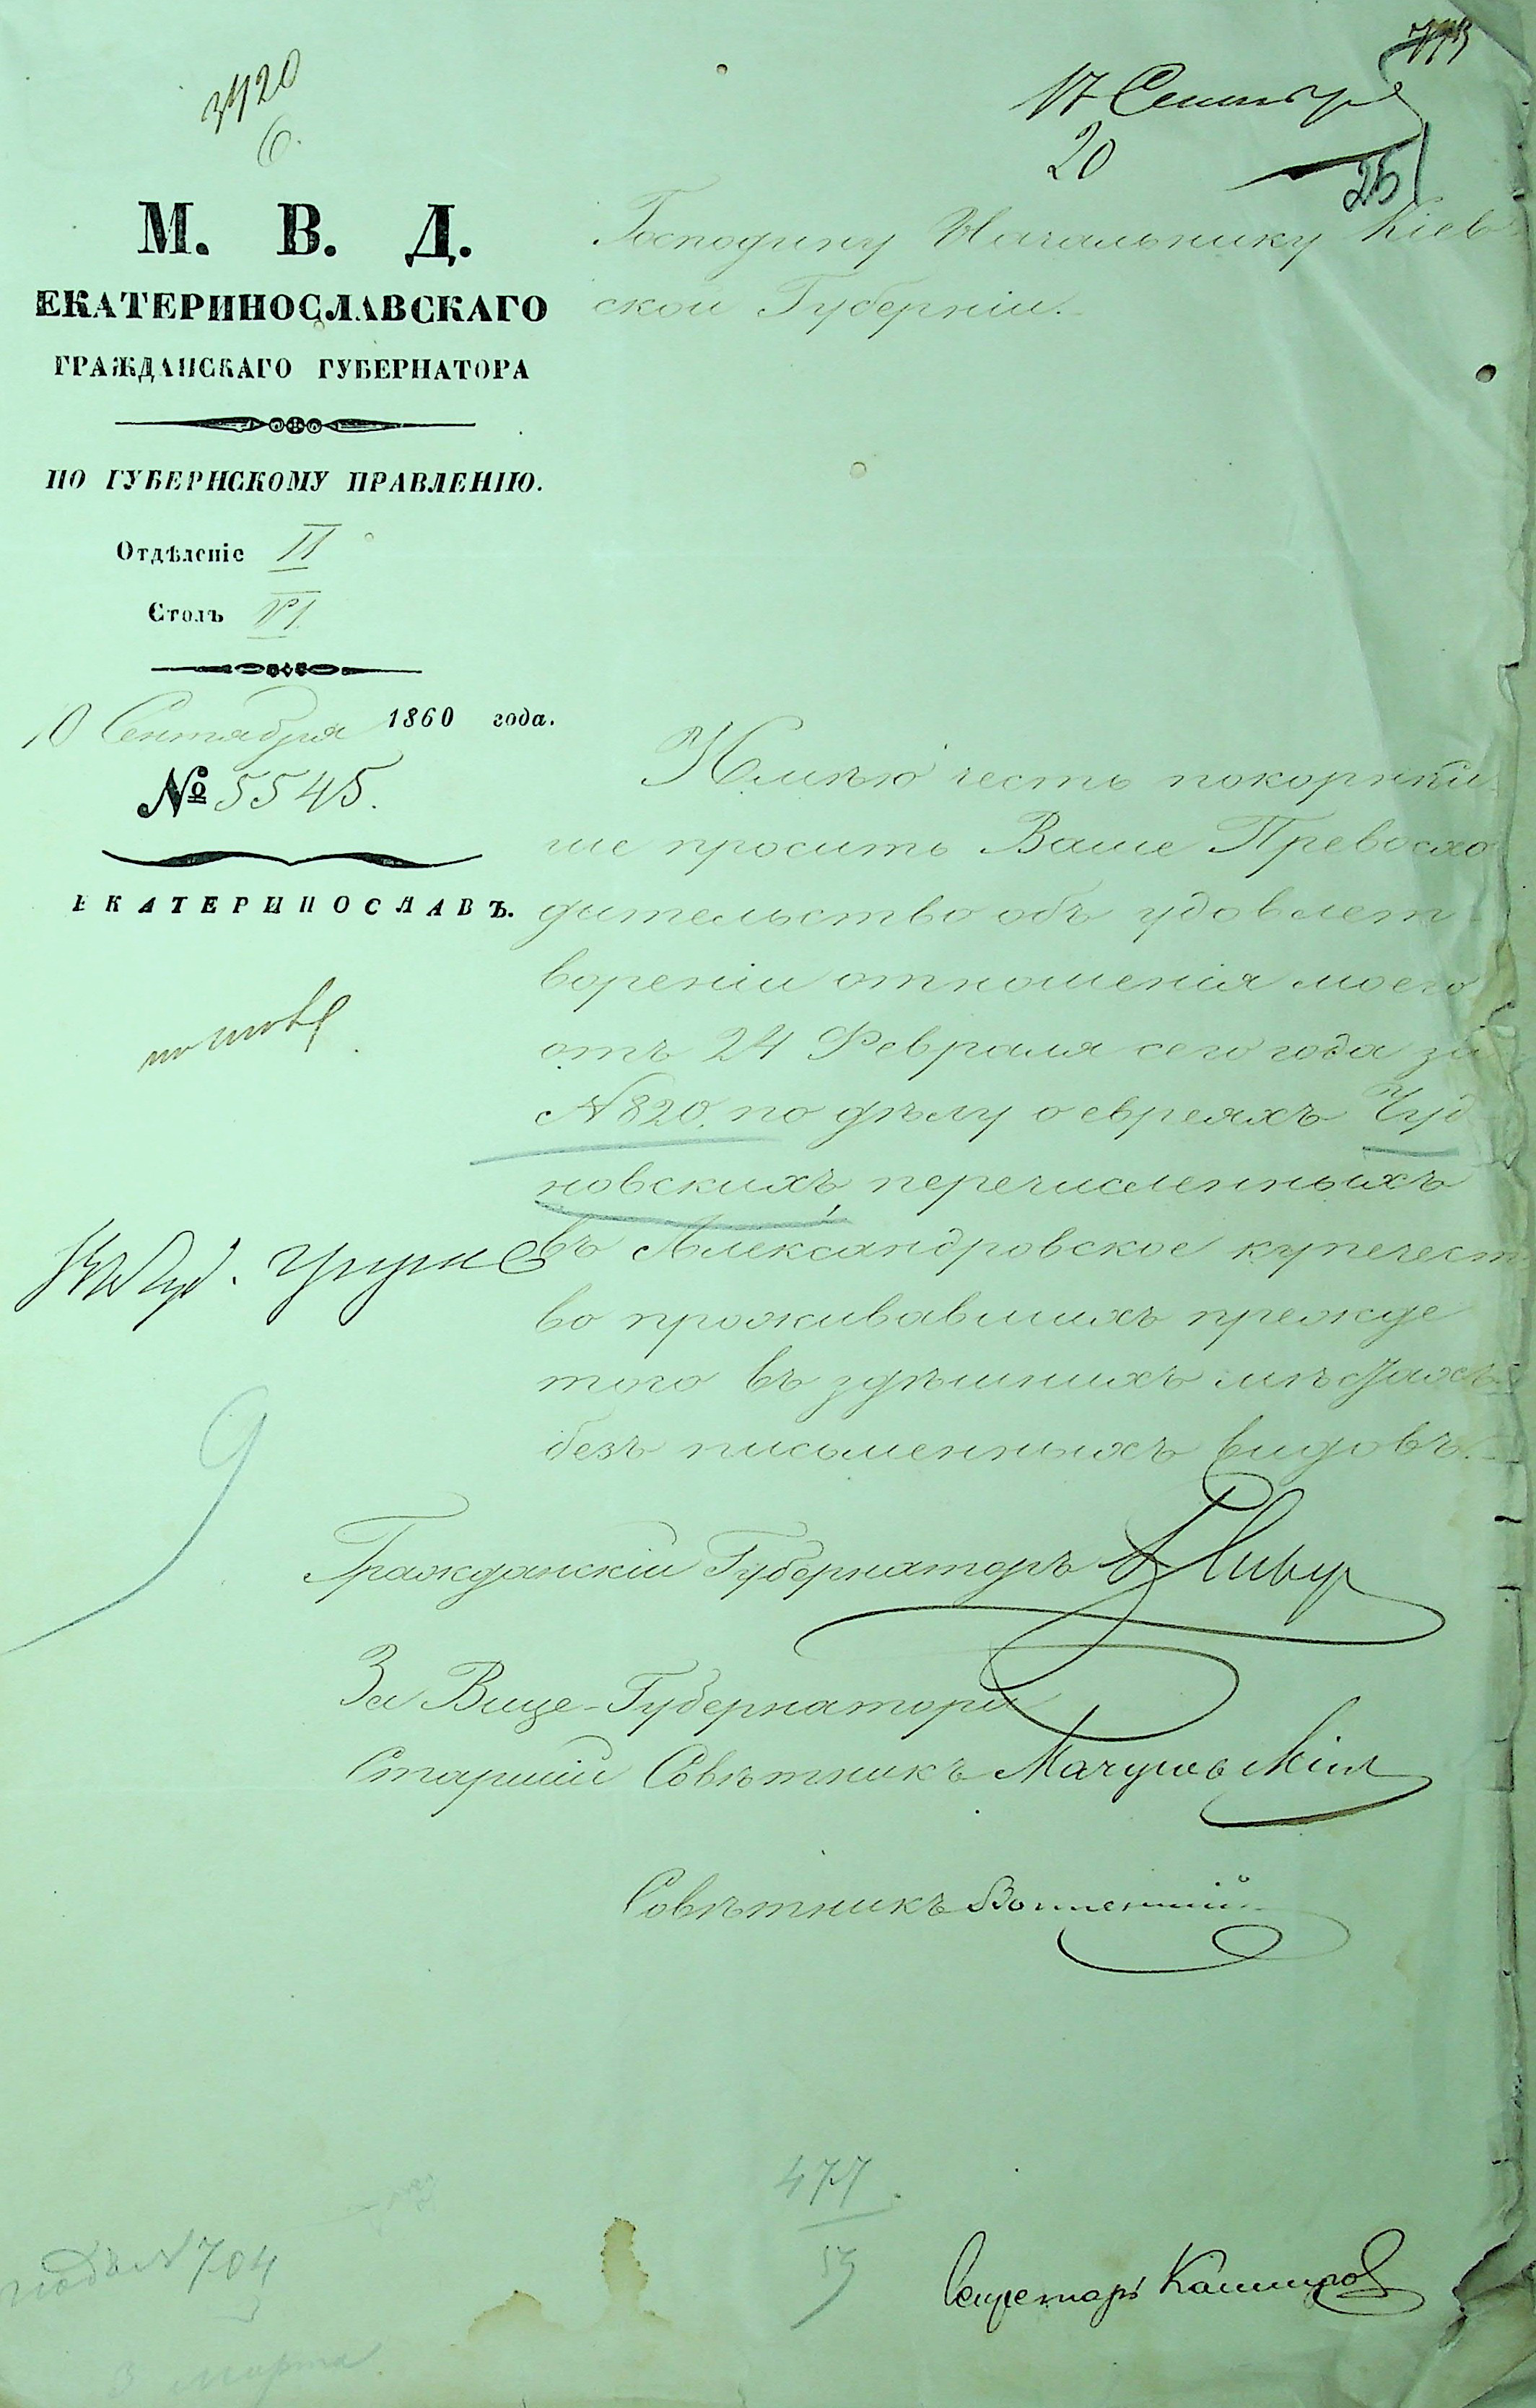 3420
6.
17 Сентября
20
25
М. В. Д.
ЕКАТЕРИНОСЛАВСКАГО
ГРАЖДАНСКАГО ГУБЕРНАТОРА
ПО ГУБЕРНСКОМУ ПРАВЛЕНІЮ.
Отдѣленіе II
Столъ VI
10 Сентября 1860 года.
№ 5545.
ЕКАТЕРИНОСЛАВЪ.
Господину Начальнику Кіев
ской Губерніи.
Имѣю честь покорнѣй
ше просить Ваше Превосхо
дительство объ удовлет-
вореніи отношенія моего
отъ 24 Февраля сего года за
№ 820, по дѣлу о евреяхъ Чуд
новскихъ, перечисленныхъ
въ Александровское купечест
во проживавшихъ прежде
того въ здѣшнихъ мѣстахъ
безъ письменныхъ видовъ.
9
Гражданскій Губернаторъ
За Вице-Губернатора
Старшій Совѣтникъ
Совѣтникъ
477
59
№ 704
3 марта
Секретарь